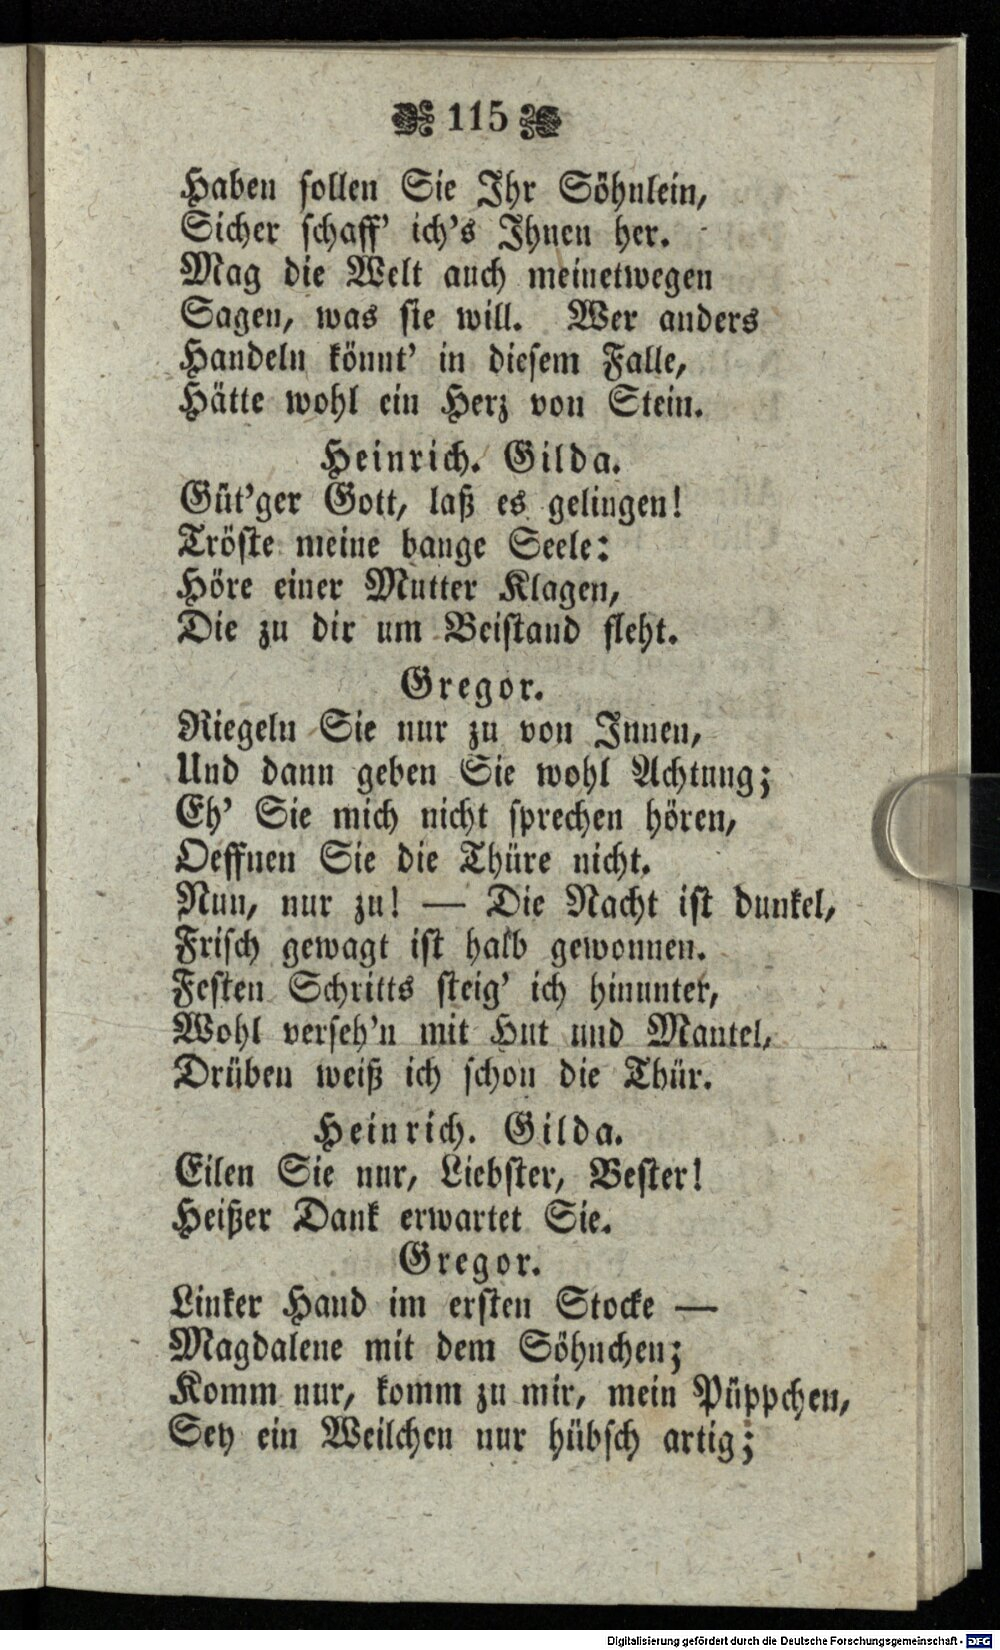 115
Haben sollen Sie Ihr Söhnlein,
Sicher schaff' ich's Ihnen her.
Mag die Welt auch meinetwegen
Sagen, was sie will. Wer anders
Handeln könnt' in diesem Falle,
Hätte wohl ein Herz von Stein.
Heinrich. Gilda.
Güt'ger Gott, laß es gelingen!
Tröste meine bange Seele:
Höre einer Mutter Klagen,
Die zu dir um Beistand fleht.
Gregor.
Riegeln Sie nur zu von Innen,
Und dann geben Sie wohl Achtung;
Eh' Sie mich nicht sprechen hören,
Oeffnen Sie die Thüre nicht.
Nun, nur zu! — Die Nacht ist dunkel,
Frisch gewagt ist halb gewonnen.
Festen Schritts steig' ich hinunter,
Wohl verseh'n mit Hut und Mantel,
Drüben weiß ich schon die Thür.
Heinrich. Gilda.
Eilen Sie nur, Liebster, Bester!
Heißer Dank erwartet Sie.
Gregor.
Linker Hand im ersten Stocke —
Magdalene mit dem Söhnchen;
Komm nur, komm zu mir, mein Püppchen,
Sey ein Weilchen nur hübsch artig;
Digitalisierung gefördert durch die Deutsche Forschungsgemeinschaft - DFG